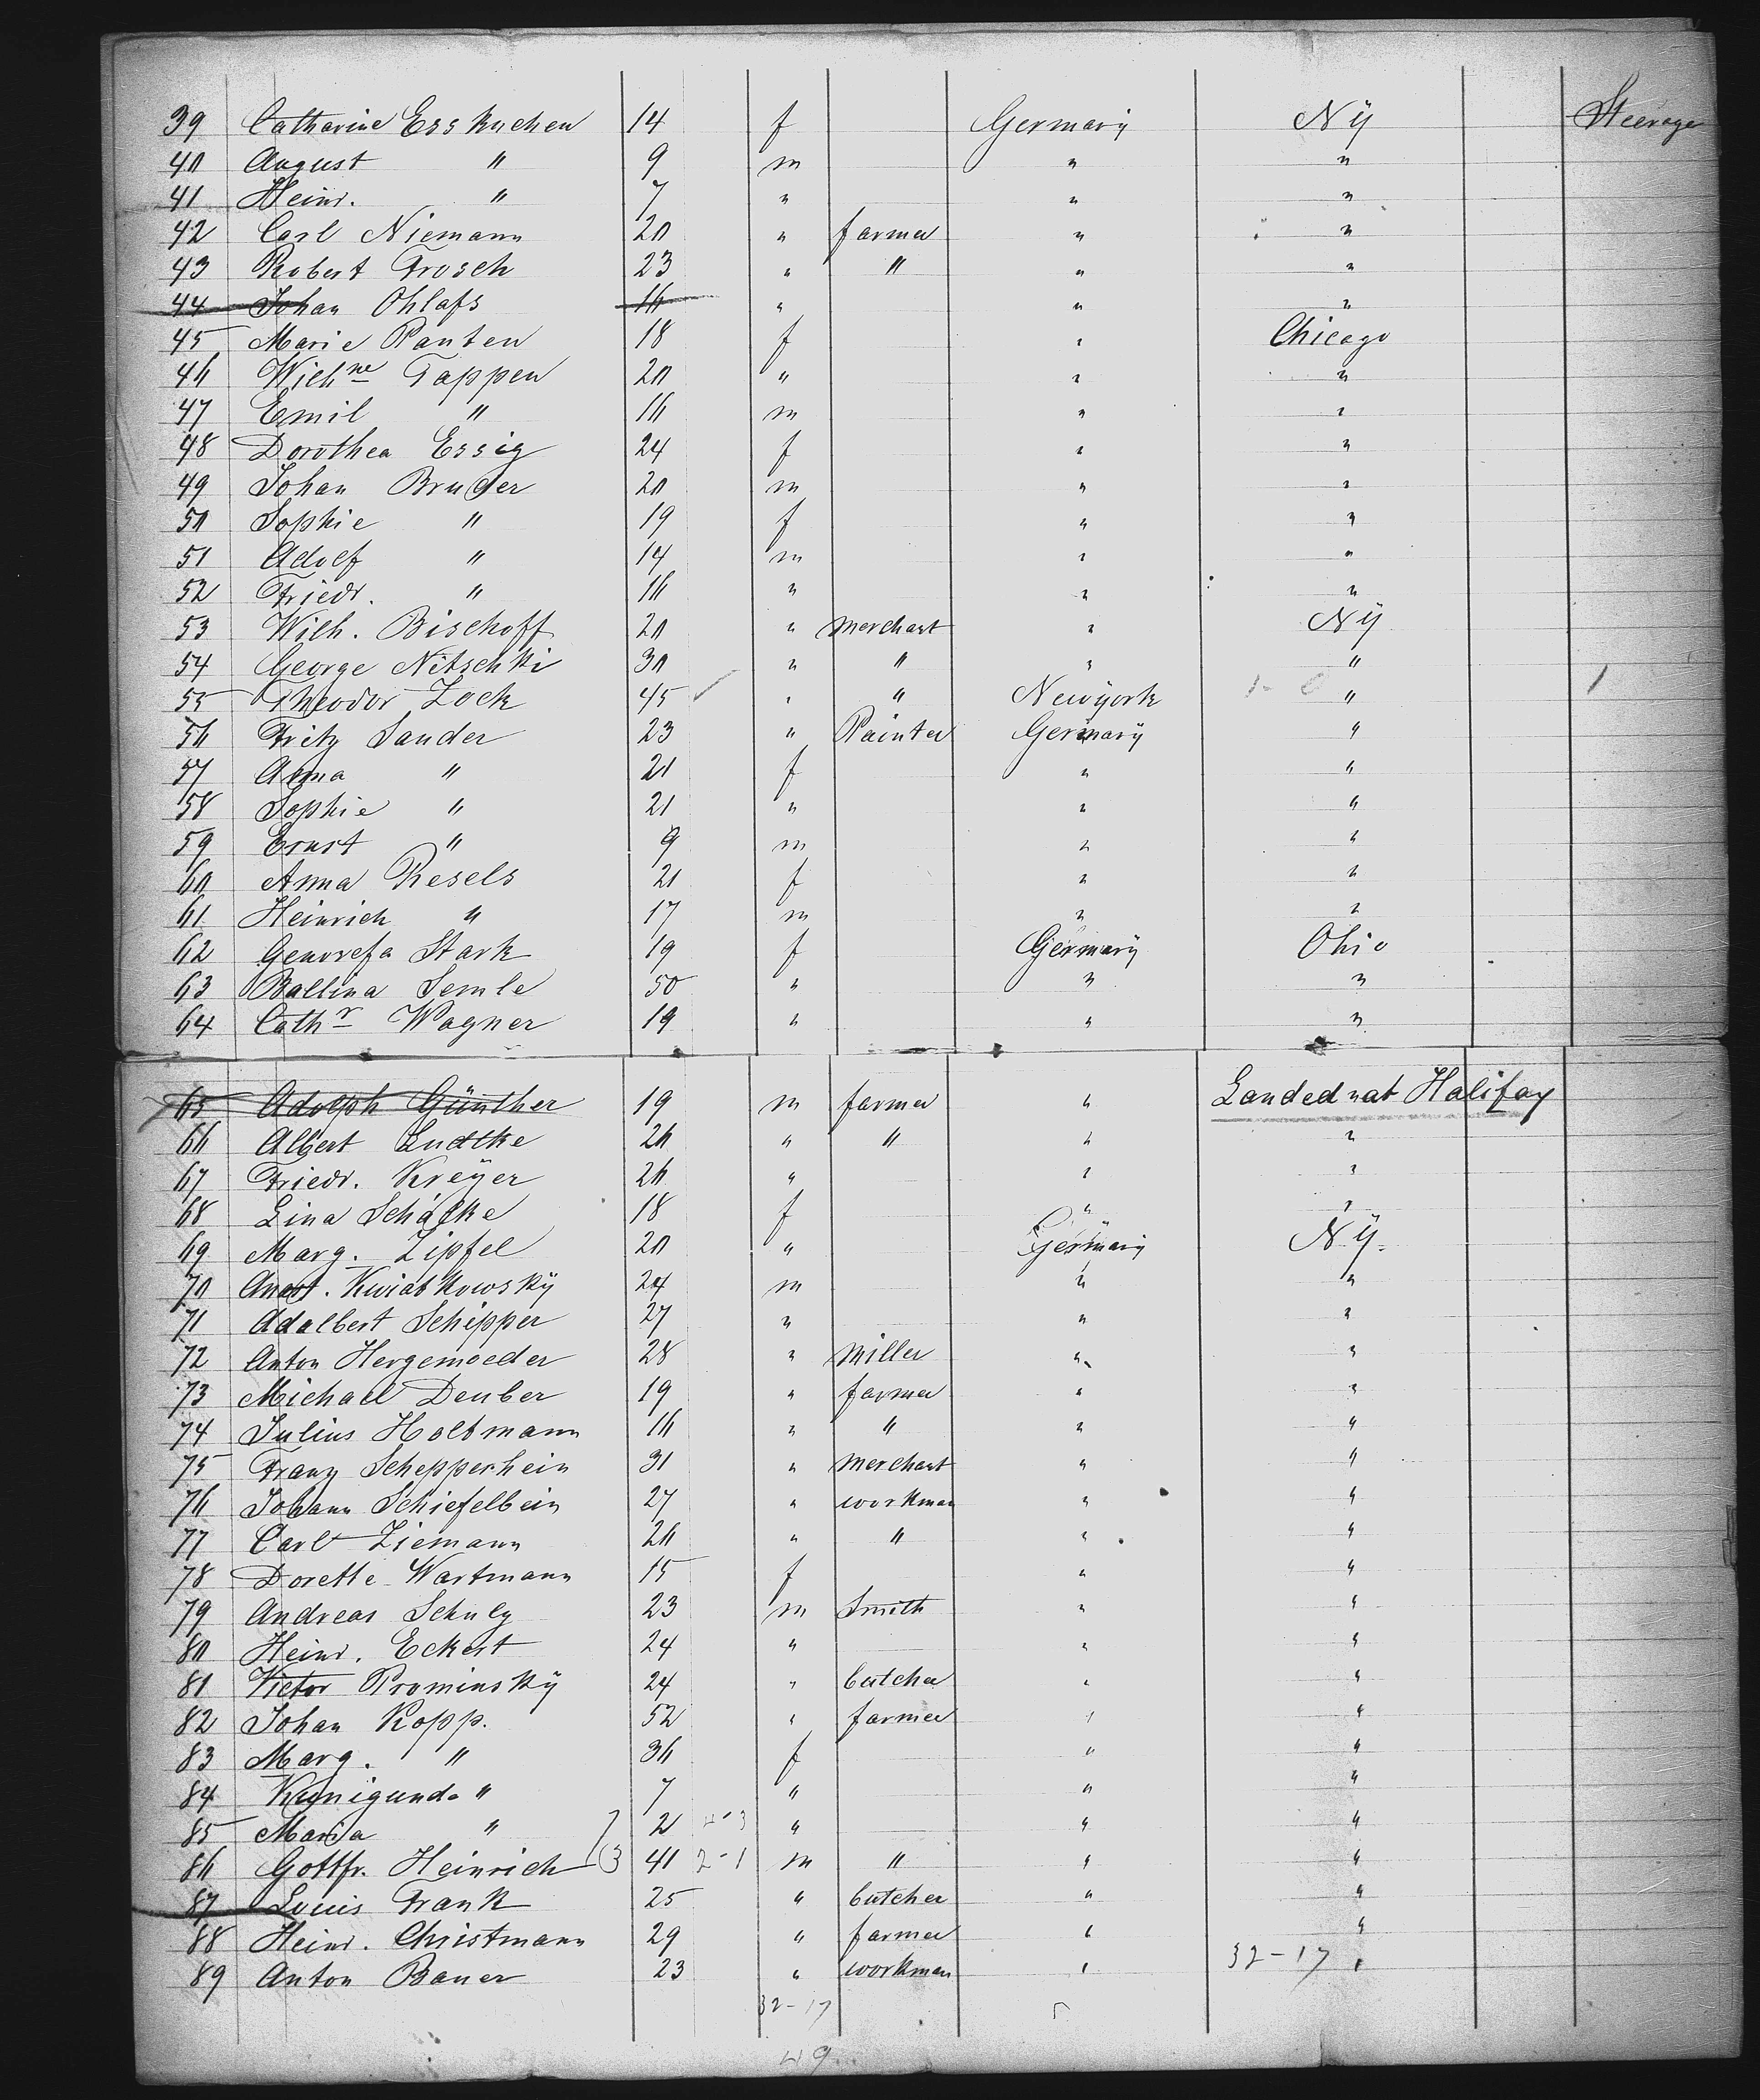 39 Catharine Esskuchen 14 f Germany Ny Steerage
40 August " 9 m " "
41 Heinr. " 7 " " "
42 Carl Niemann 20 " farmer " "
43 Robert Frosch 23 " " " "
44 Johan Ohlafs 16 " " "
45 Marie Panten 18 f " Chicago
46 Wilhne Tappen 20 " " "
47 Emil " 16 m " "
48 Dorothea Essig 24 f " "
49 Johan Bruder 20 m " "
50 Sophie " 19 f " "
51 Adolf " 14 m " "
52 Friedr. " 16 " " "
53 Wilh. Bischoff 20 " merchant " Ny
54 George Nitschki 30 " " " "
55 Theodor Zock 45 " " Newyork "
56 Fritz Sander 23 " Painter Germany "
57 Anna " 21 f " "
58 Sophie " 21 " " "
59 Ernst " 9 m " "
60 Anna Resels 21 f " "
61 Heinrich " 17 m " "
62 Genovefa Stark 19 f Germany Ohio
63 Ballina Semle 50 " " "
64 Cathr Wagner 19 " " "
65 Adolph Günther 19 m farmer " Landed at Halifax
66 Albert Ludtke 26 " " " "
67 Friedr. Kreyer 26 " " "
68 Lina Schäfke 18 f " "
69 Marg. Zipfel 20 " Germany Ny.
70 Anast. Kwiatkowsky 24 m " "
71 Adalbert Schipper 27 " " "
72 Anton Hergemoeder 28 " Miller " "
73 Michael Deuber 19 " farmer " "
74 Julius Holtmann 16 " " " "
75 Franz Schepperhein 31 " Merchant " "
76 Johann Schiefelbein 27 " workman " "
77 Carl Ziemann 26 " " " "
78 Dorette Wartmann 15 f " "
79 Andreas Schulz 23 m Smith " "
80 Heinr. Eckert 24 " " "
81 Victor Prominsky 24 " butcher " "
82 Johan Kopp. 52 " farmer " "
83 Marg. " 36 f " "
84 Kunigunde " 7 " " "
85 Maria " 2 4-3 " " "
86 Gottfr. Heinrich 3 41 2-1 m " " "
87 Louis Frank 25 " butcher " "
88 Heinr. Christmann 29 " farmer " "
89 Anton Bauer 23 " workman " 32-17 "
32-17
49